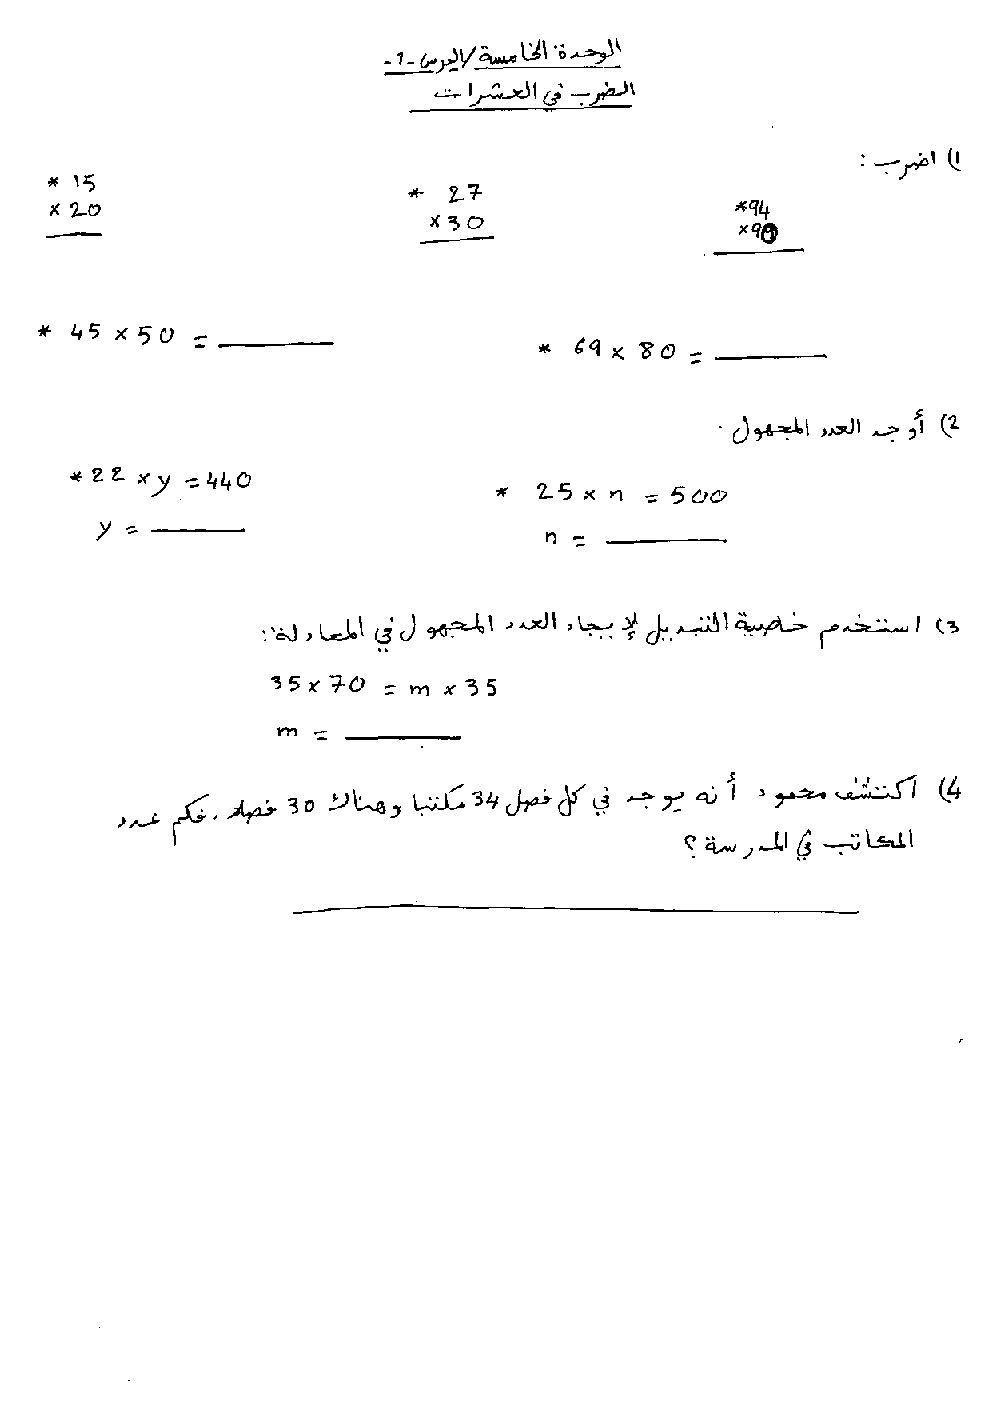 الوحدة الخامسة/الدرس -1-
الضرب في العشرات
1) اضرب :
* 15
× 20
* 27
× 30
*94
×90
* 45 × 50 = ______
* 69 × 80 = ______
2) أوجد العدد المجهول .
*22 × y = 440
* 25 × n = 500
y = ______
n = ______
3) استخدم خاصية التبديل لإيجاد العدد المجهول في المعادلة:
35 × 70 = m × 35
m = ______
4) اكتشف محمود أنه يوجد في كل فصل 34 مكتبا وهناك 30 فصلا. فكم عدد
المكاتب في المدرسة ؟